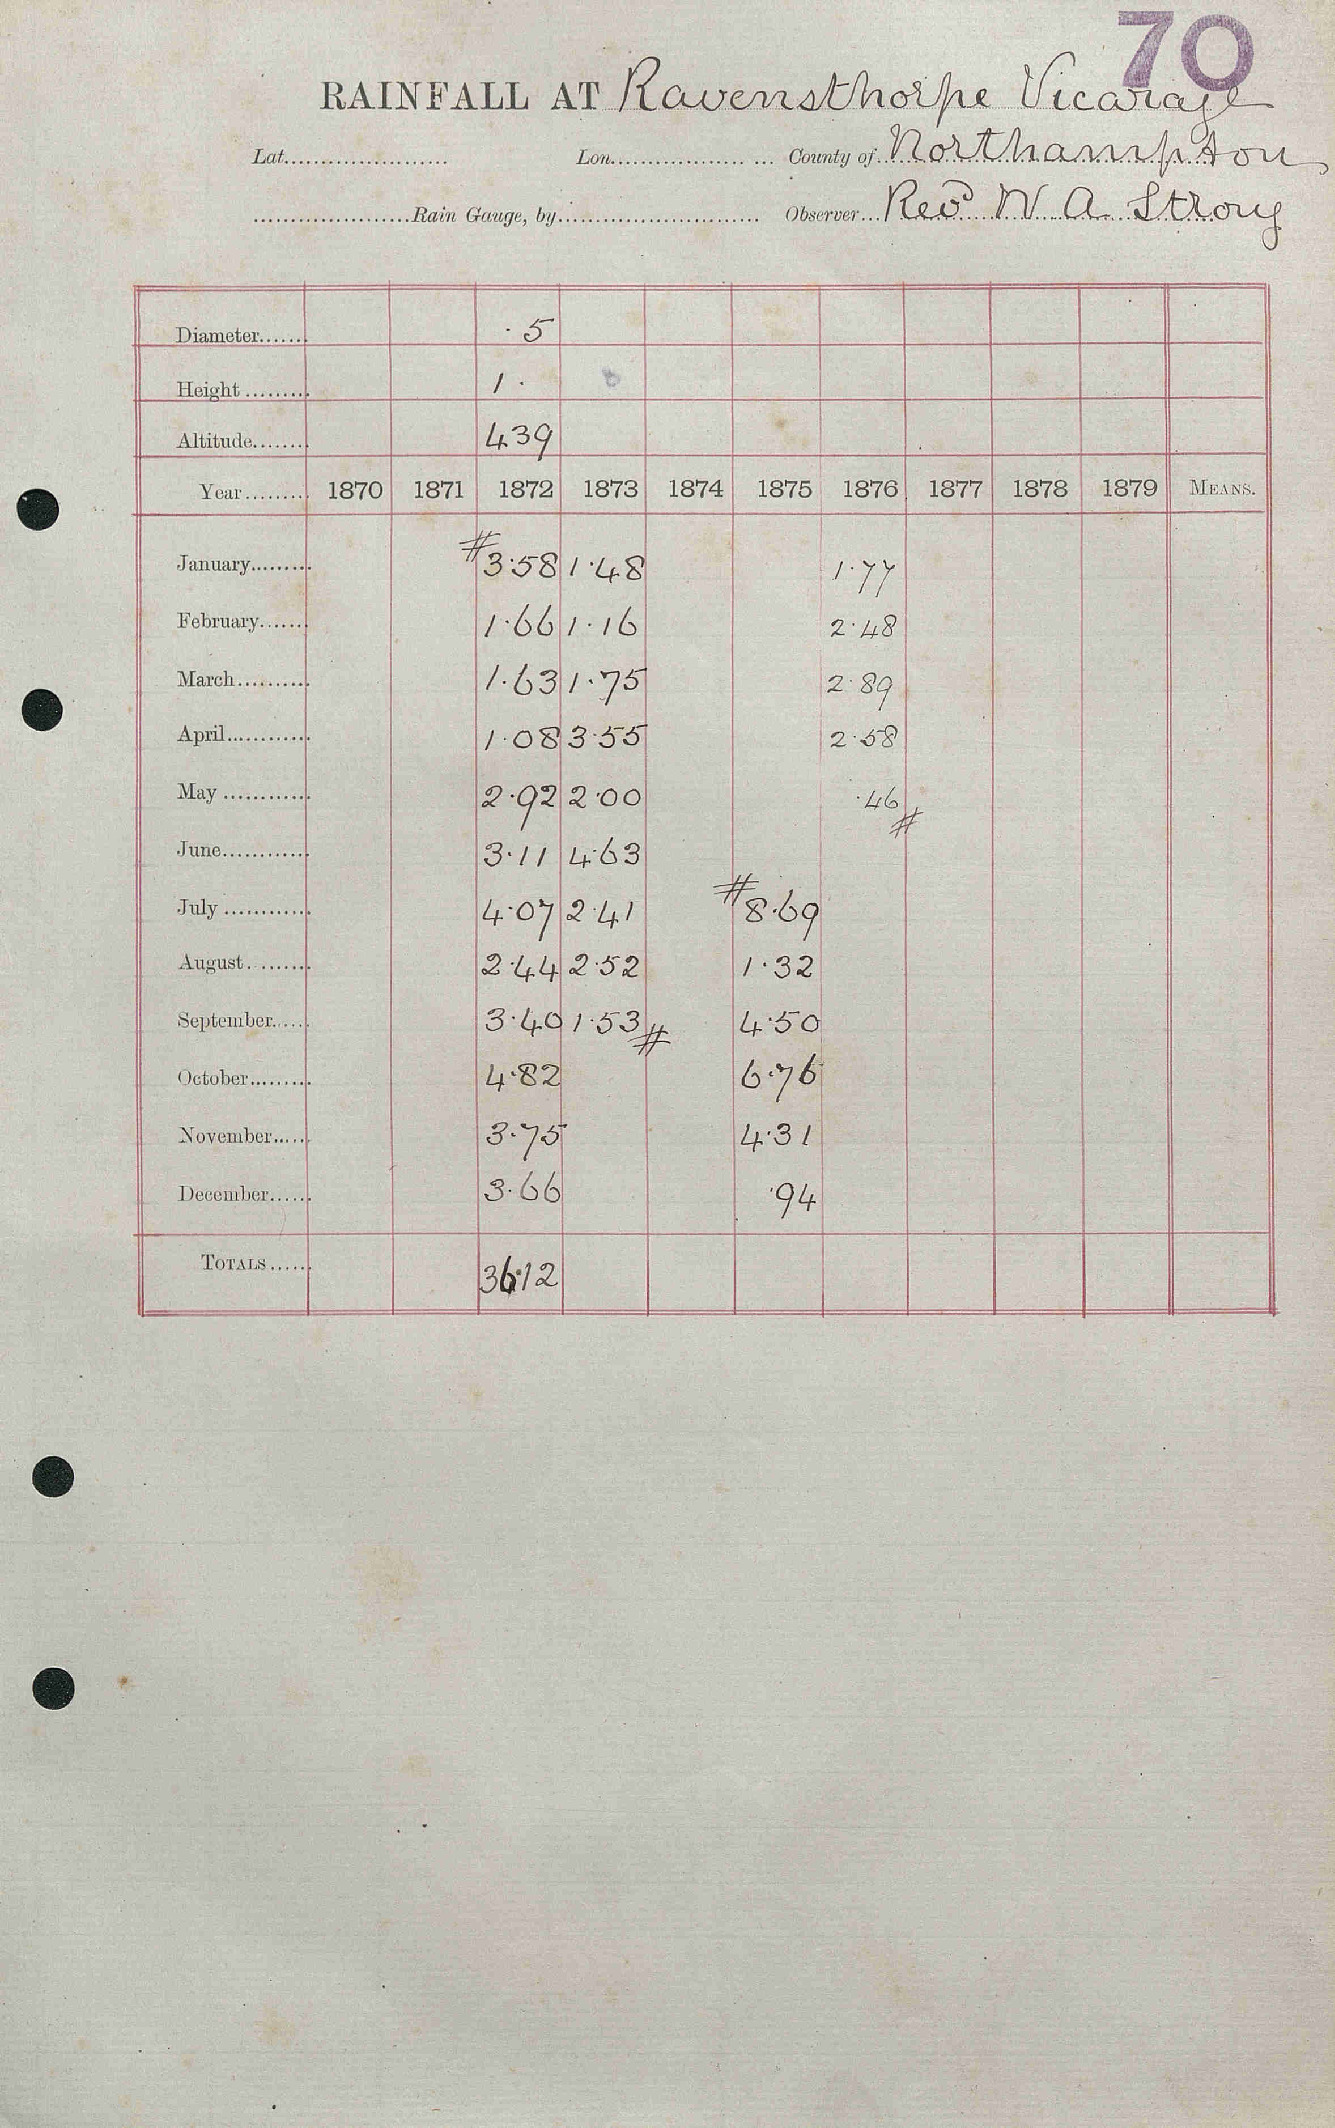 70
RAINFALL AT Ravensthorpe Vicarage
Lat...................... Lon................... ... County of Northampton
.....................Rain Gauge, by........................... Observer... Revd W A Strong
Diameter....... ·5
Height ......... 1·
Altitude........ 439
Year......... 1870 1871 1872 1873 1874 1875 1876 1877 1878 1879 MEANS.
January......... # 3·58 1·48 1·77
February....... 1·66 1·16 2·48
March.......... 1·63 1·75 2·89
April............ 1·08 3·55 2·58
May ............ 2·92 2·00 ·46 #
June............ 3·11 4·63
July ............ 4·07 2·41 # 8·69
August. ........ 2·44 2·52 1·32
September...... 3·40 1·53 # 4·50
October......... 4·82 6·76
November...... 3·75 4·31
December...... 3·66 ·94
TOTALS...... 36·12